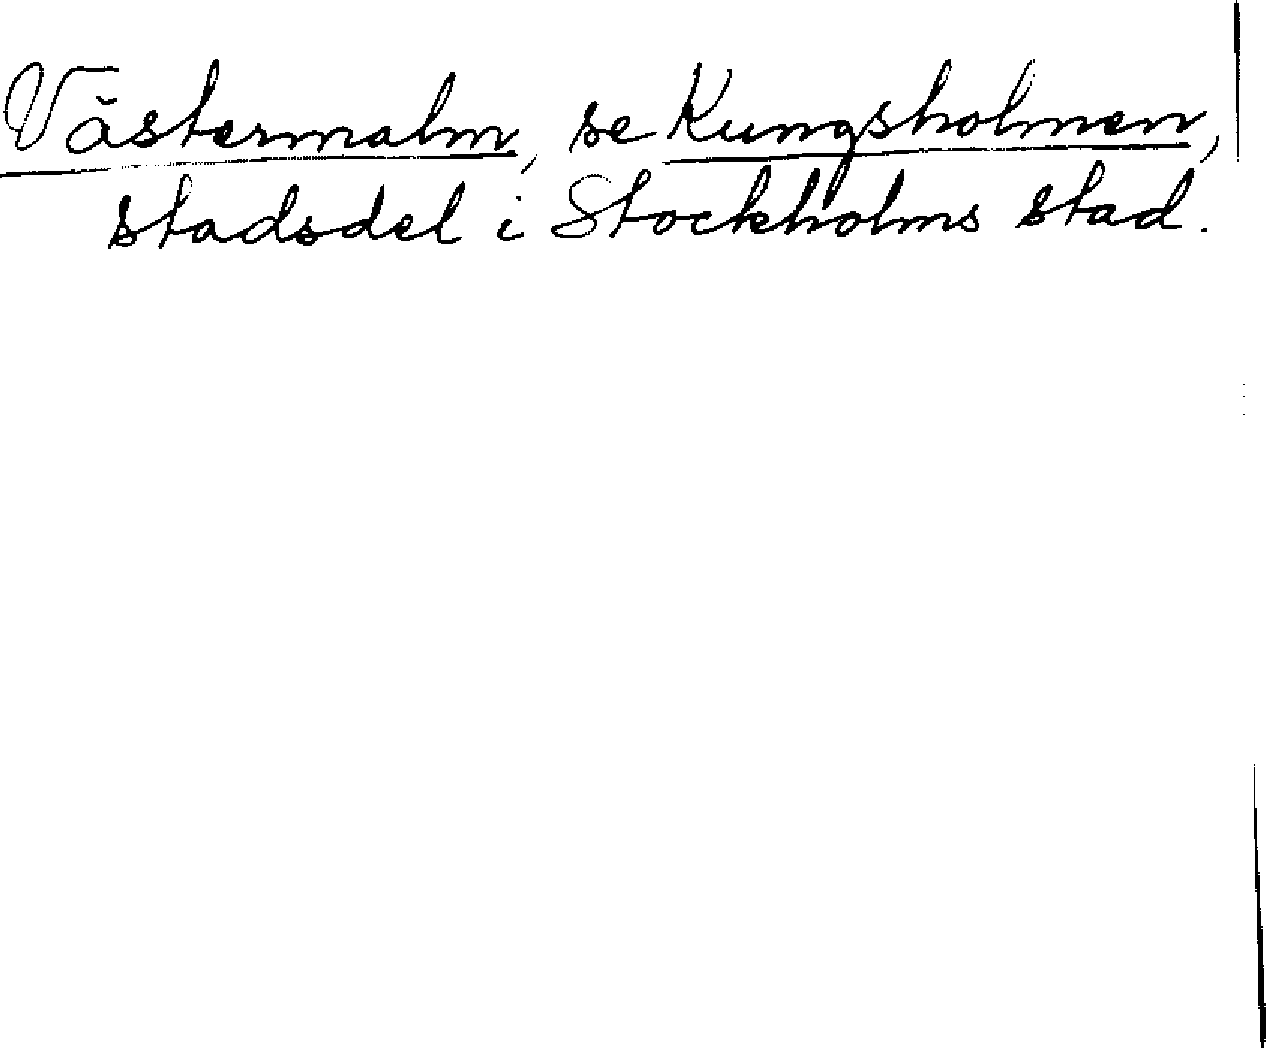 Västermalm, se Kungsholmen,
stadsdel i Stockholms stad.